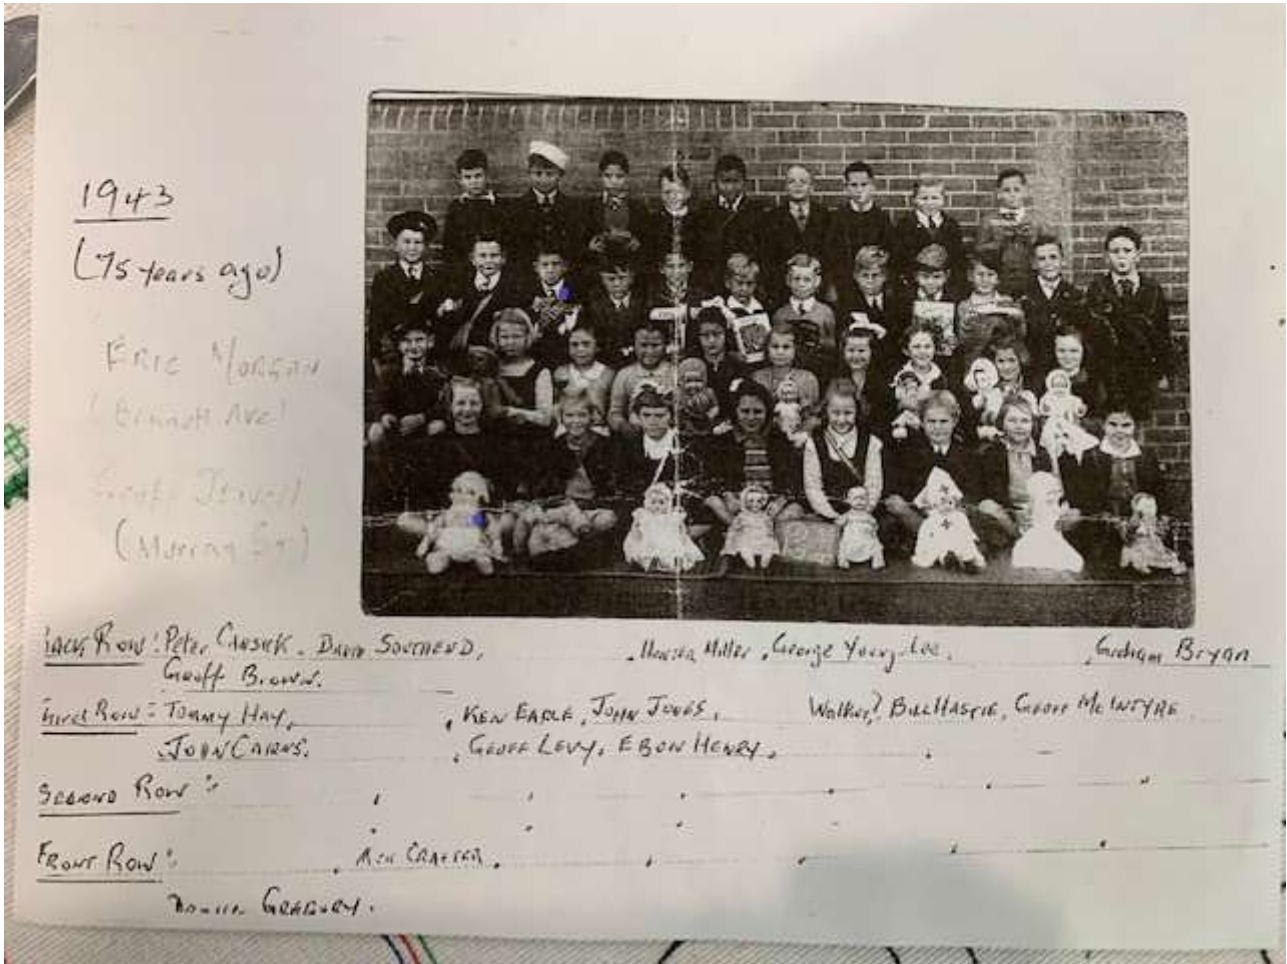 1943
(75 years ago)
ERIC MORGAN
(Bennett Ave)
(Murray St)
BACK ROW: Peter CANSICK. DAVID SOUTHEND, Miller, George Young-Lee, Graham Bryan
Geoff Brown.
Third Row:- TOMMY HAY, KEN EARLE, JOHN JONES, Walker?, BILL HASTIE, GEOFF McINTYRE
JOHN CAIRNS. GEOFF LEVY, EBON HENRY,
SECOND ROW:-
FRONT ROW:-